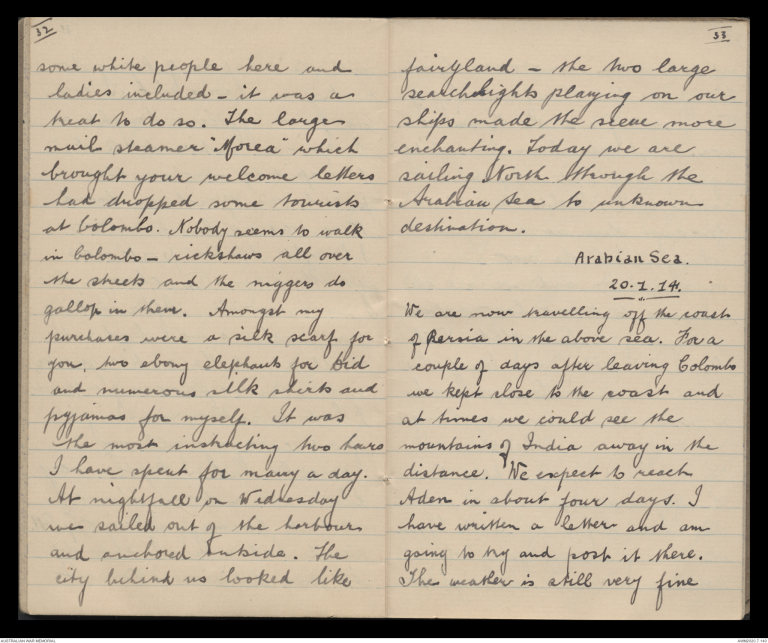 32
some white people here and
ladies included - it was a
treat to do so. The large
mail steamer "Morea" which
brought your welcome letters
had dropped some tourists
at Colombo. Nobody seems to walk
in Colombo - rickshaws all over
the streets and the niggers do
gallop in them. Amongst my
purchases were a silk scarf for
you, two ebony elephants for Sid
and numerous silk shirts and
pyjamas for myself. It was
the most instructing two hours
I have spent for many a day.
At nightfall on Wednesday
we sailed out of the harbour
and anchored outside. The
city behind us looked like
33
fairyland - the two large
searchlights playing on our
ships made the scene more
enchanting. Today we are
sailing North through the
Arabian Sea to unknown
destination.
Arabian Sea.
20.1.14.
We are now travelling off the coast
of Persia in the above sea. For a
couple of days after leaving Colombo
we kept close to the coast and
at times we could see the
mountains of India away in the
distance. We expect to reach
Aden in about four days. I
have written a letter and am
going to try and post it there.
The weather is still very fine
AUSTRALIAN WAR MEMORIAL